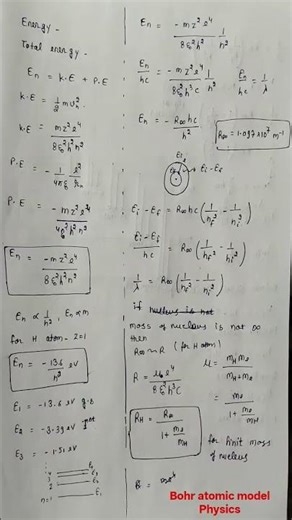 Energy -
Total energy -
En = K.E + P.E
K.E = 1/2 m v²
K.E = mz²e⁴ / 8ε₀²h²n²
P.E = - 1/4πε₀ ze²/rn
P.E = - mz²e⁴ / 4ε₀²h²n²
En = - mz²e⁴ / 8ε₀²h²n²
En ∝ 1/n², En ∝ m
for H atom - Z=1
En = -13.6/n² eV
E₁ = -13.6 eV g.s
E₂ = -3.39 eV
E₃ = -1.51 eV
4
3
2
n=1
E₁
En = - mz²e⁴ / 8ε₀²h² 1/n²
En/hc = - mz²e⁴ / 8ε₀²h³c 1/n² En/hc = 1/λ
En = - R∞hc / n² R∞ = 1.097×10⁷ m⁻¹
Ei
→ Ei - Ef
Ei - Ef = R∞hc (1/nf² - 1/ni²)
Ei - Ef / hc = R∞ (1/nf² - 1/ni²)
1/λ = R∞ (1/nf² - 1/ni²)
if nucleus is not
mass of nucleus is not ∞
then
R∞ ~ R (for H atom)
R = μe⁴ / 8ε₀²h³c μ = mH me / mH + me
= me / 1 + me/mH
RH = R∞ / 1 + me/mH
for finit mass of nucleus
Bohr atomic model
Physics